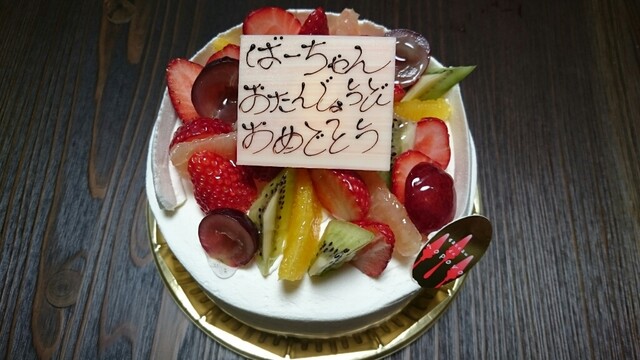 ばーちゃん
おたんじょうび
おめでとう